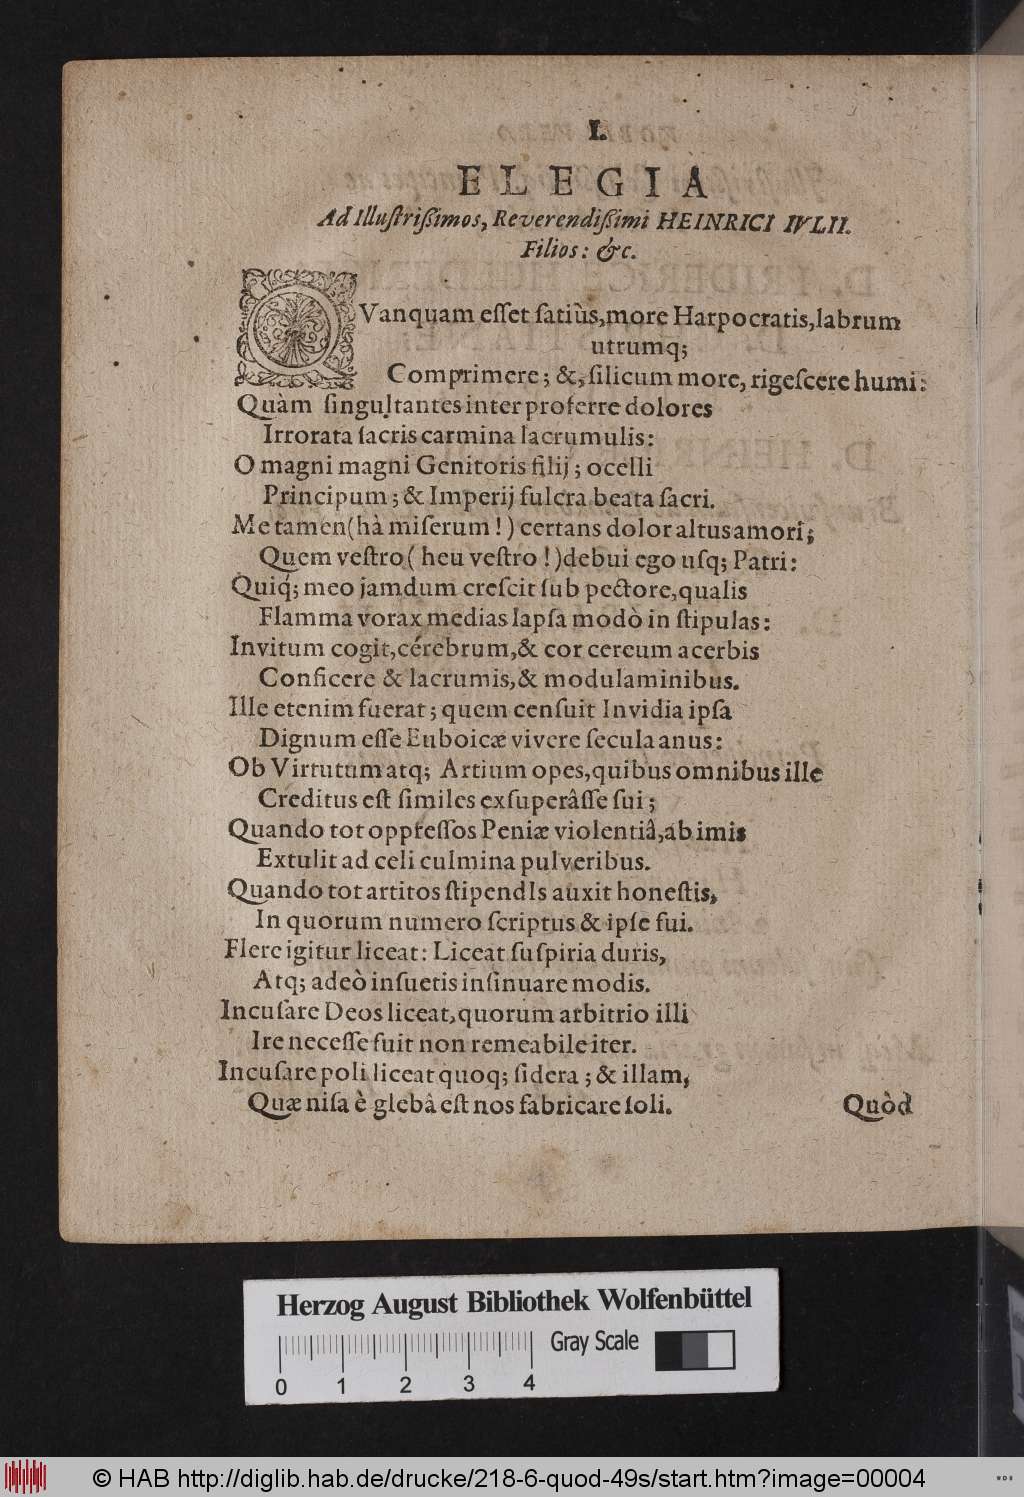 I.
ELEGIA
Ad Illuſtriſſimos, Reverendiſſimi HEINRICI IVLII.
Filios: &c.
QVanquam eſſet ſatiùs, more Harpocratis, labrum
utrumq;
Comprimere; &, ſilicum more, rigeſcere humi:
Quàm ſingultantes inter proferre dolores
Irrorata ſacris carmina lacrumulis:
O magni magni Genitoris filij; ocelli
Principum; & Imperij fulcra beata ſacri.
Me tamen (hà miſerum!) certans dolor altus amori;
Quem veſtro (heu veſtro!) debui ego uſq; Patri:
Quiq́; meo jamdum creſcit ſub pectore, qualis
Flamma vorax medias lapſa modò in ſtipulas:
Invitum cogit, cérebrum, & cor cereum acerbis
Conficere & lacrumis, & modulaminibus.
Ille etenim fuerat; quem cenſuit Invidia ipſa
Dignum eſſe Euboicæ vivere ſecula anus:
Ob Virtutum atq; Artium opes, quibus omnibus ille
Creditus eſt ſimiles exſuperâſſe ſui;
Quando tot oppreſſos Peniæ violentiâ, ab imis
Extulit ad celi culmina pulveribus.
Quando tot artitos ſtipendIs auxit honeſtis,
In quorum numero ſcriptus & ipſe fui.
Flere igitur liceat: Liceat ſuſpiria duris,
Atq; adeò inſuetis inſinuare modis.
Incuſare Deos liceat, quorum arbitrio illi
Ire neceſſe fuit non remeabile iter.
Incuſare poli liceat quoq; ſidera; & illam,
Quæ niſa è glebâ eſt nos fabricare ſoli.
Quòd
Herzog August Bibliothek Wolfenbüttel
Gray Scale
0 1 2 3 4
© HAB http://diglib.hab.de/drucke/218-6-quod-49s/start.htm?image=00004